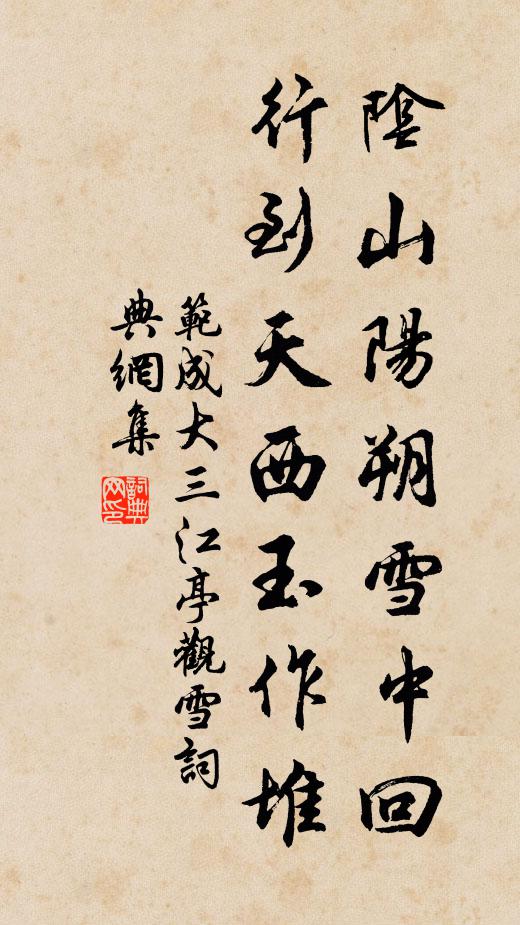 陰山陽朔雪中回
行到天西玉作堆
範成大三江亭觀雪詞
典網集
詞典網印